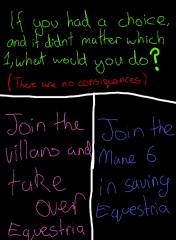 If you had a choice,
and it didnt matter which
1, what would you do?
(There are no consiquances)
Join the
villans and
take
over
Equestria
Join the
Mane 6
in saving
Equestria